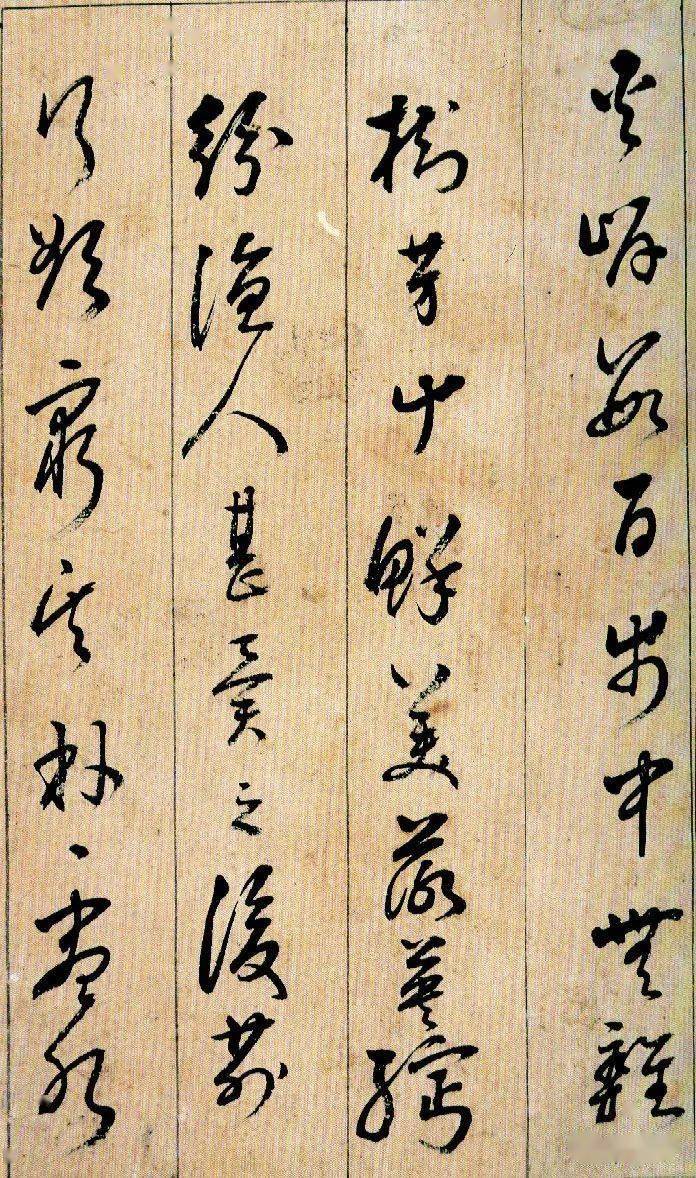 夾岸數百步中無雜
樹芳草鮮美落英繽
紛漁人甚異之復前
行欲窮其林〻盡水